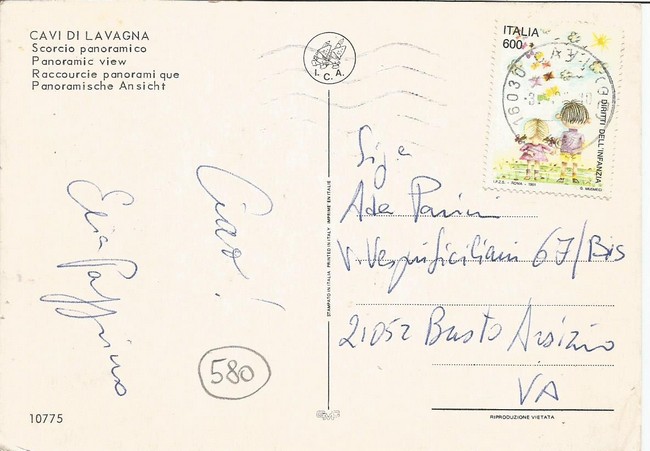 CAVI DI LAVAGNA
Scorcio panoramico
Panoramic view
Raccourcie panoramique
Panoramische Ansicht
I.C.A.
ITALIA
600
DIRITTI DELL'INFANZIA
I.P.Z.S. - ROMA - 1991
16030
Ciao!
580
10775
STAMPATO IN ITALIA PRINTED IN ITALY IMPRIMÉ EN ITALIE
Sig.a
Ada Parini
V. Vespri Siciliani 67/Bis
21052 Busto Arsizio
VA
RIPRODUZIONE VIETATA